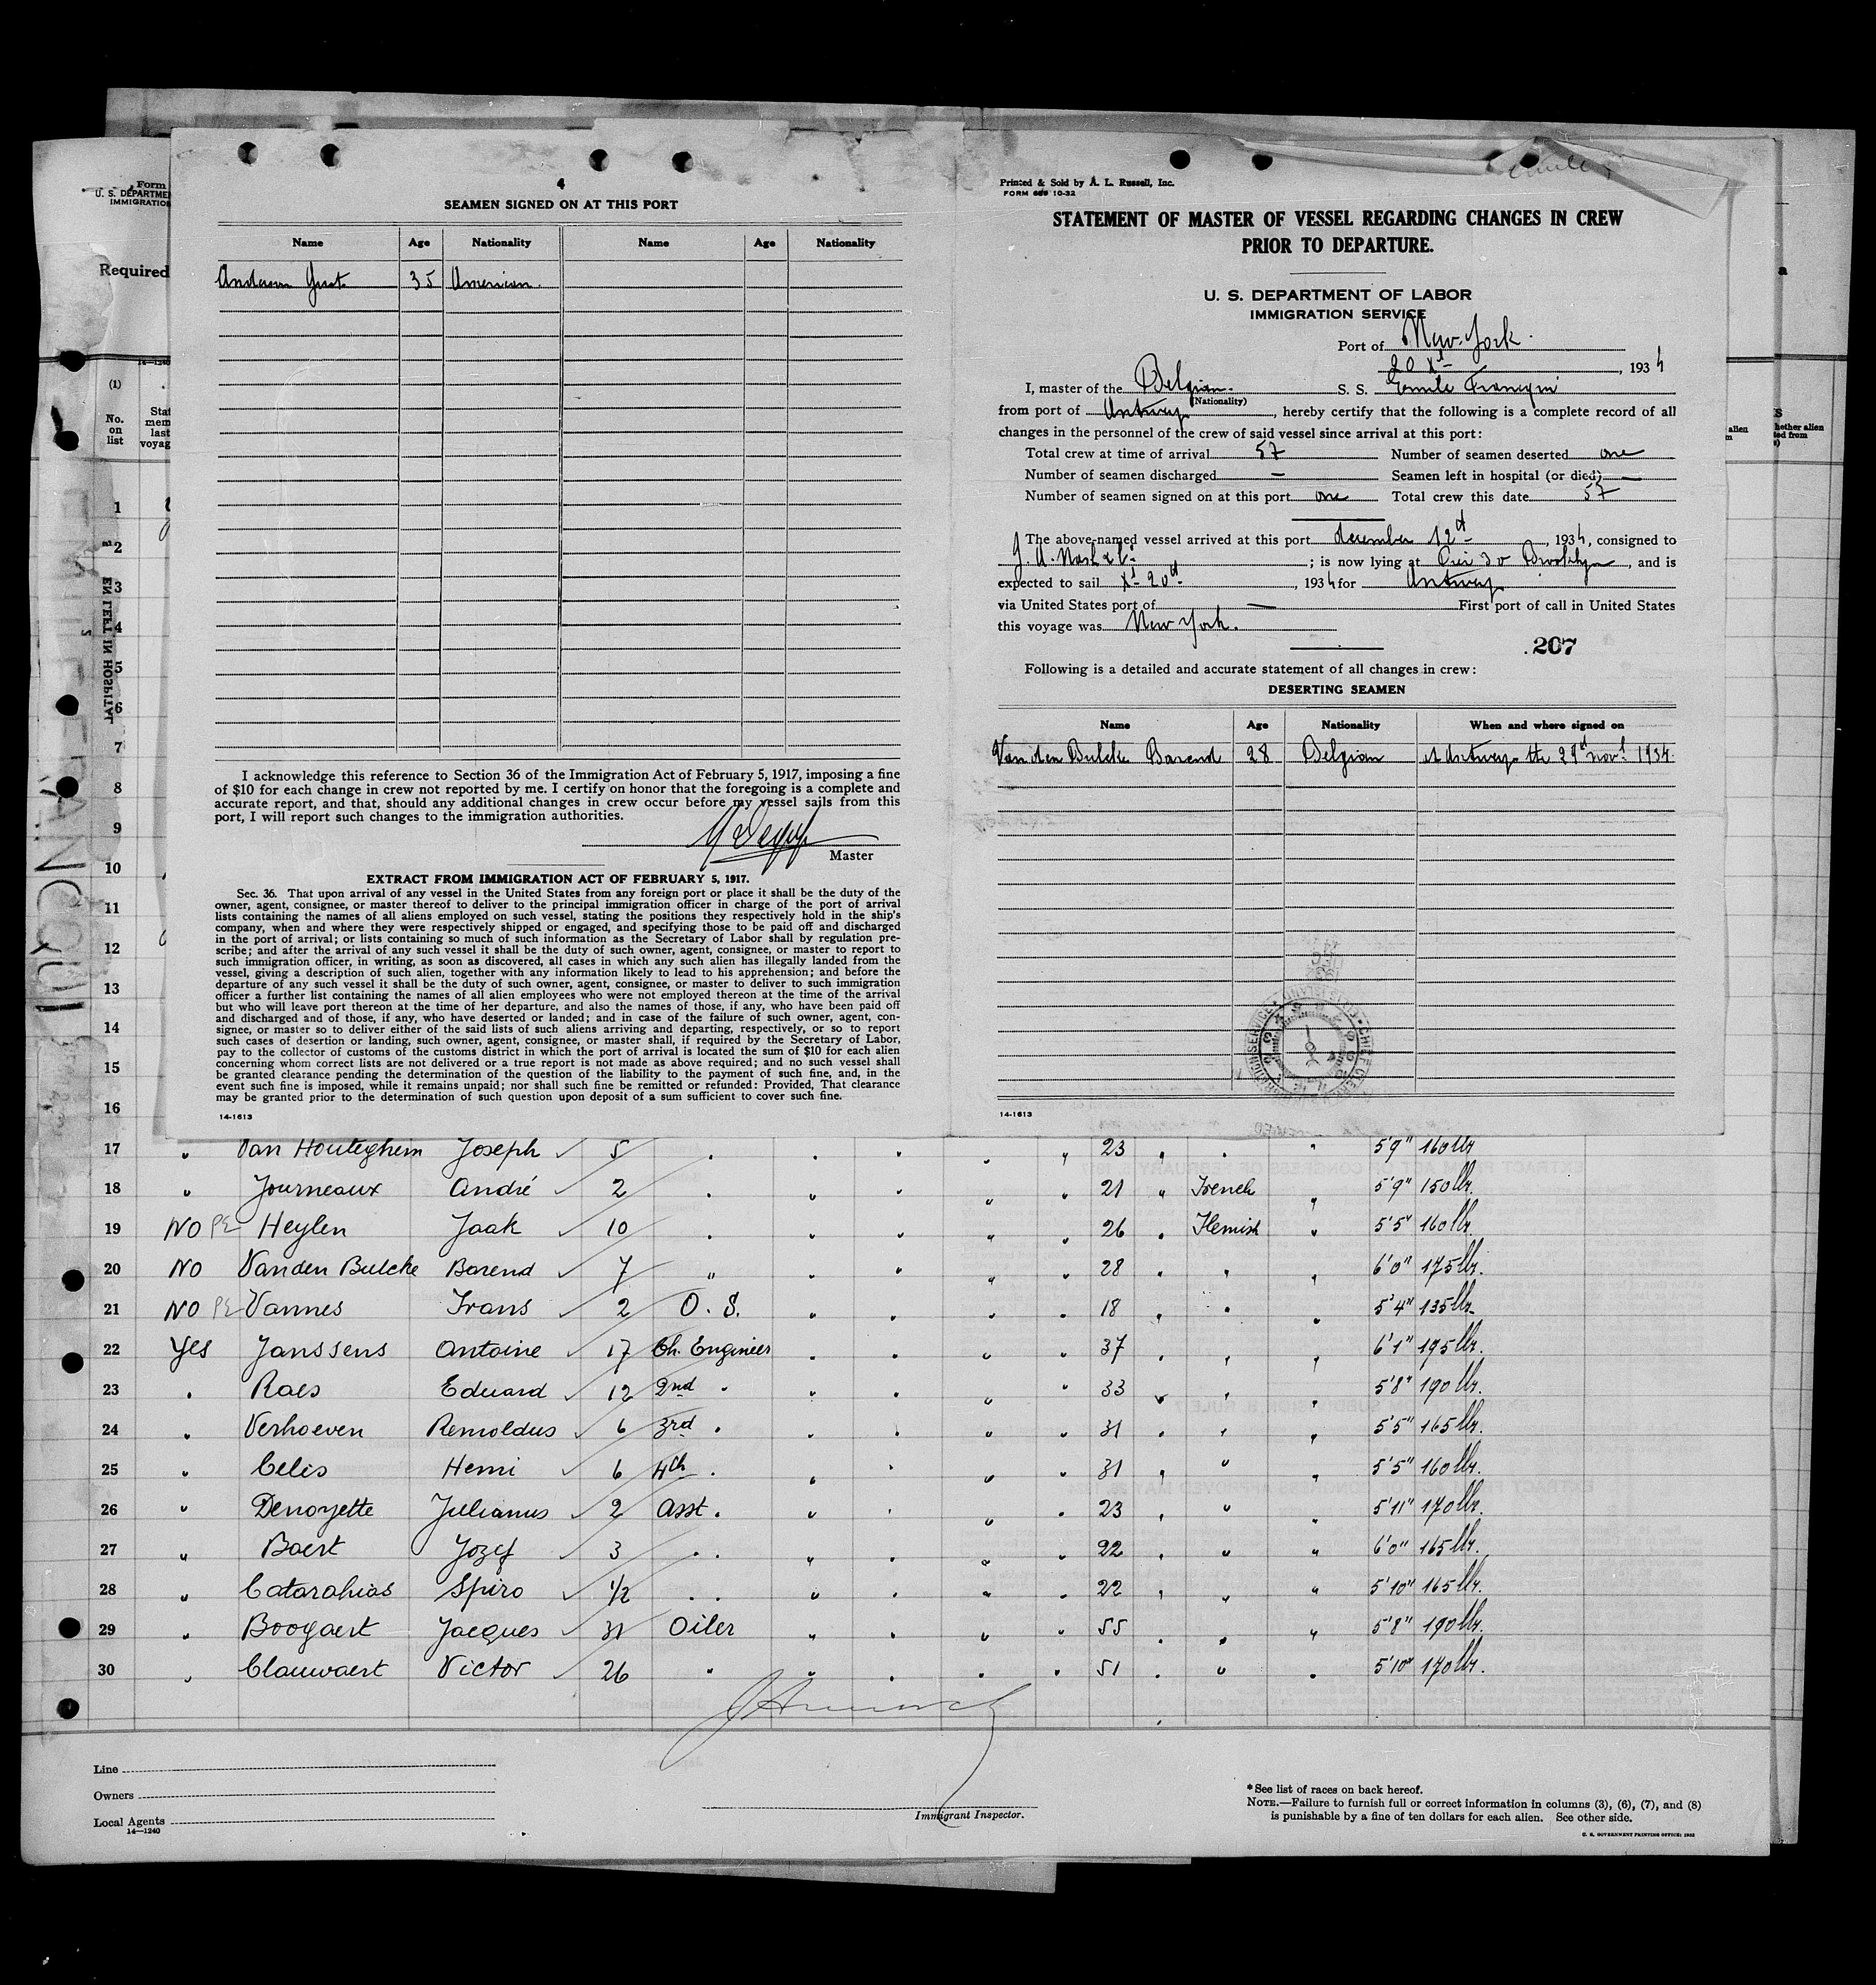 4
SEAMEN SIGNED ON AT THIS PORT
Name Age Nationality Name Age Nationality
Anderson Gust 35 American.
I acknowledge this reference to Section 36 of the Immigration Act of February 5, 1917, imposing a fine
of $10 for each change in crew not reported by me. I certify on honor that the foregoing is a complete and
accurate report, and that, should any additional changes in crew occur before my vessel sails from this
port, I will report such changes to the immigration authorities.
Master
EXTRACT FROM IMMIGRATION ACT OF FEBRUARY 5, 1917.
Sec. 36. That upon arrival of any vessel in the United States from any foreign port or place it shall be the duty of the
owner, agent, consignee, or master thereof to deliver to the principal immigration officer in charge of the port of arrival
lists containing the names of all aliens employed on such vessel, stating the positions they respectively hold in the ship's
company, when and where they were respectively shipped or engaged, and specifying those to be paid off and discharged
in the port of arrival; or lists containing so much of such information as the Secretary of Labor shall by regulation pre-
scribe; and after the arrival of any such vessel it shall be the duty of such owner, agent, consignee, or master to report to
such immigration officer, in writing, as soon as discovered, all cases in which any such alien has illegally landed from the
vessel, giving a description of such alien, together with any information likely to lead to his apprehension; and before the
departure of any such vessel it shall be the duty of such owner, agent, consignee, or master to deliver to such immigration
officer a further list containing the names of all alien employees who were not employed thereon at the time of the arrival
but who will leave port thereon at the time of her departure, and also the names of those, if any, who have been paid off
and discharged and of those, if any, who have deserted or landed; and in case of the failure of such owner, agent, con-
signee, or master so to deliver either of the said lists of such aliens arriving and departing, respectively, or so to report
such cases of desertion or landing, such owner, agent, consignee, or master shall, if required by the Secretary of Labor,
pay to the collector of customs of the customs district in which the port of arrival is located the sum of $10 for each alien
concerning whom correct lists are not delivered or a true report is not made as above required; and no such vessel shall
be granted clearance pending the determination of the question of the liability to the payment of such fine, and, in the
event such fine is imposed, while it remains unpaid; nor shall such fine be remitted or refunded: Provided, That clearance
may be granted prior to the determination of such question upon deposit of a sum sufficient to cover such fine.
14-1613
Printed & Sold by A. L. Russell, Inc.
FORM 689 10-32
STATEMENT OF MASTER OF VESSEL REGARDING CHANGES IN CREW
PRIOR TO DEPARTURE.
U. S. DEPARTMENT OF LABOR
IMMIGRATION SERVICE
Port of New-York.
20 , 1934
I, master of the Belgian S. S. Emile Francqui
(Nationality)
from port of Antwerp, hereby certify that the following is a complete record of all
changes in the personnel of the crew of said vessel since arrival at this port:
Total crew at time of arrival 57 Number of seamen deserted one
Number of seamen discharged — Seamen left in hospital (or died) —
Number of seamen signed on at this port one Total crew this date 57
The above-named vessel arrived at this port december 12d, 1934, consigned to
; is now lying at Pier 30 Brooklyn, and is
expected to sail 20d, 1934 for Antwerp
via United States port of — First port of call in United States
this voyage was New York.
207
Following is a detailed and accurate statement of all changes in crew:
DESERTING SEAMEN
Name Age Nationality When and where signed on
Van den Bulcke Barend 28 Belgian at Antwerp the 29d nov. 1934
14-1613
Form
U. S. DEPARTMEN
IMMIGRATION
Required
14-1240
(1)
No. on list
Stat
mem
last
voyag
1
2
3
4
5
6
7
8
9
10
11
12
13
14
15
16
17 " Van Houteghem Joseph 5 " " " " " 23 " " " 5'9" 160 lbs
18 " Journeaux André 2 " " " " " 21 " French " 5'9" 150 lbs.
19 NO PE Heylen Jaak 10 " " " " " 26 " Flemish " 5'5" 160 lbs.
20 NO Vanden Bulcke Barend 7 " " " " " 28 " " " 6'0" 175 lbs.
21 NO PE Vannes Frans 2 O. S. " " " " 18 " " " 5'4" 135 lbs.
22 Yes Janssens Antoine 17 Ch. Engineer " " " " 37 " " " 6'1" 195 lbs.
23 " Raes Eduard 12 2nd " " " " " 33 " " " 5'8" 190 lbs.
24 " Verhoeven Remoldus 6 3rd " " " " " 31 " " " 5'5" 165 lbs.
25 " Celis Henri 6 4th " " " " " 31 " " " 5'5" 160 lbs.
26 " Denoyette Julianus 2 Asst. " " " " 23 " " " 5'11" 170 lbs.
27 " Baert Jozef 3 " " " " " " 22 " " " 6'0" 165 lbs.
28 " Catarahias Spiro 1/2 " " " " " " 22 " " " 5'10" 165 lbs.
29 " Boogaert Jacques 31 Oiler " " " " 55 " " " 5'8" 190 lbs.
30 " Clauwaert Victor 26 " " " " " 51 " " " 5'10" 170 lbs.
Line
Owners
Local Agents
14—1240
Immigrant Inspector.
*See list of races on back hereof.
NOTE.—Failure to furnish full or correct information in columns (3), (6), (7), and (8)
is punishable by a fine of ten dollars for each alien. See other side.
U. S. GOVERNMENT PRINTING OFFICE: 1932